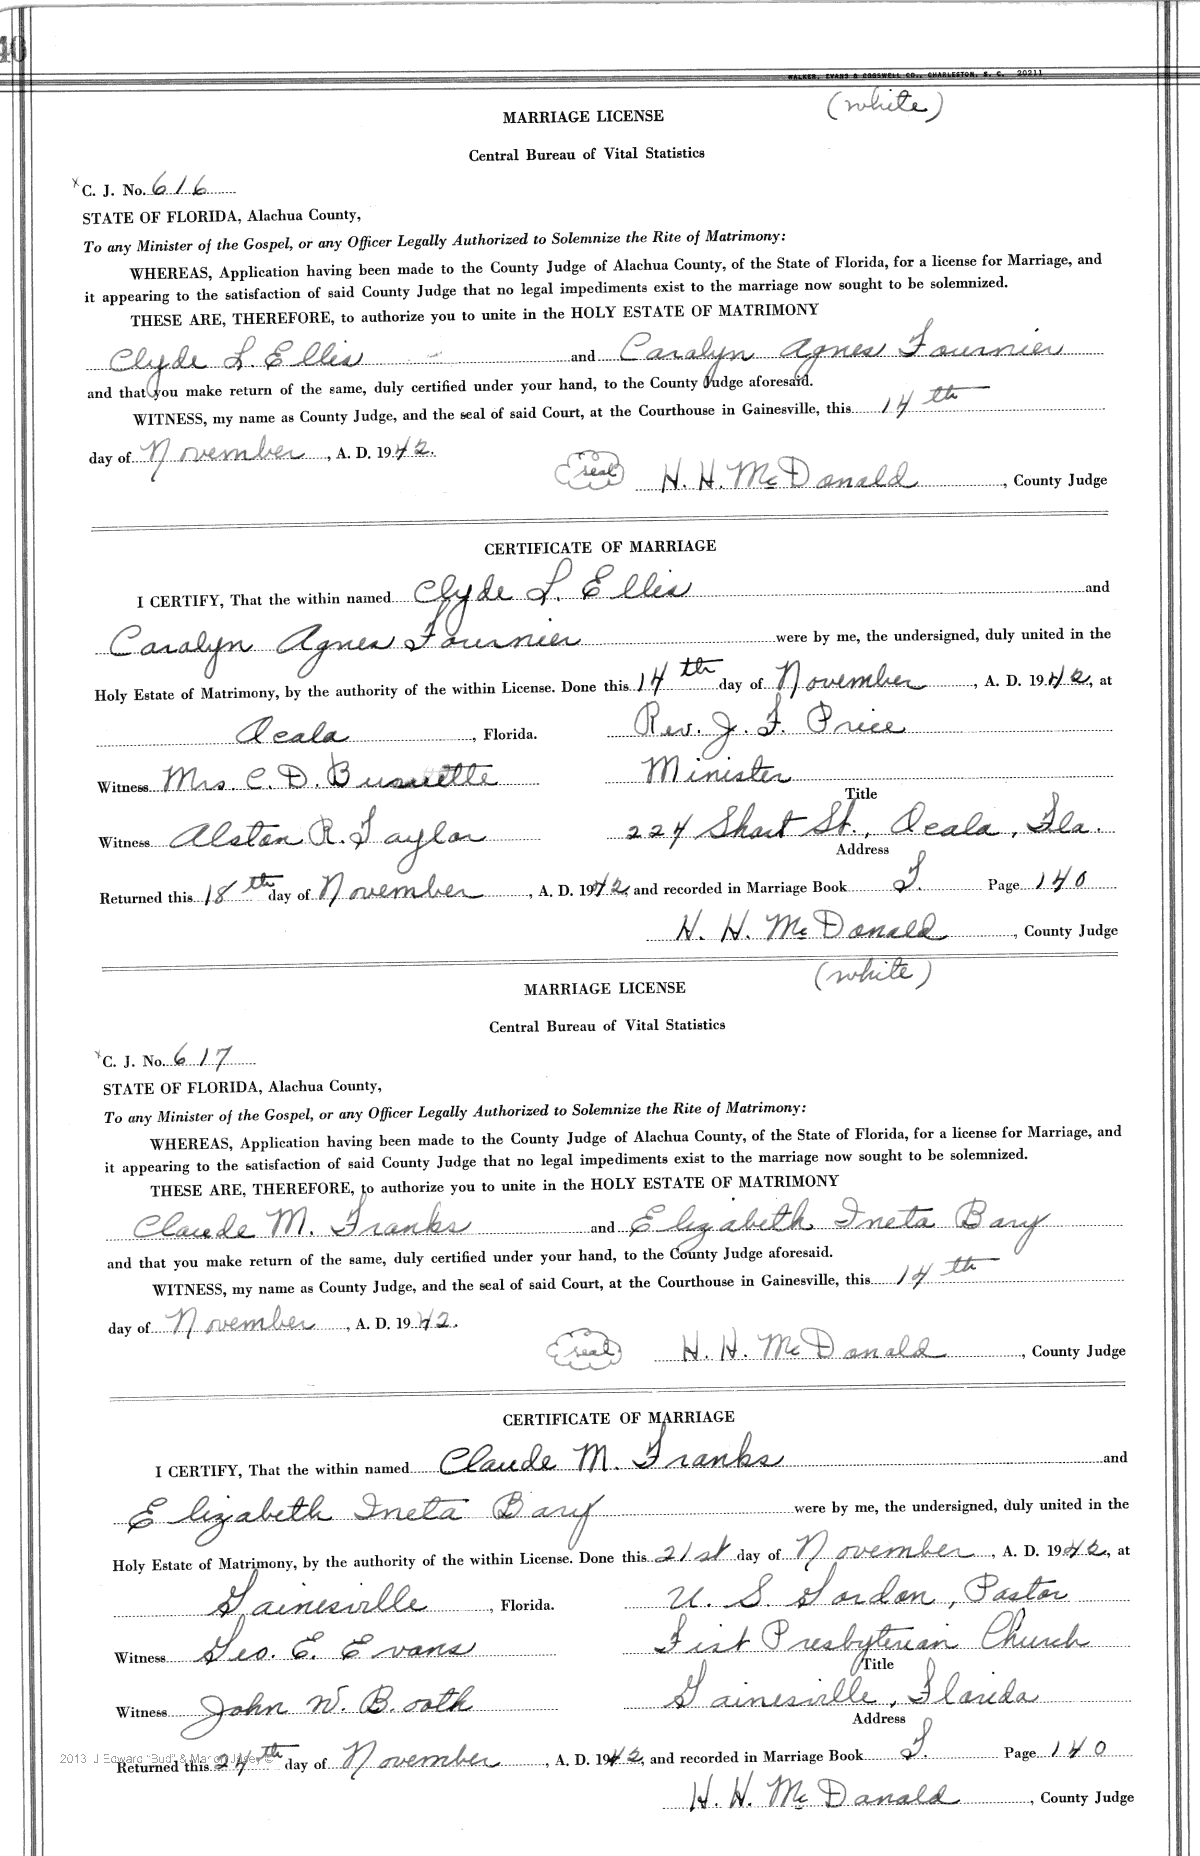 40
WALKER, EVANS & COGSWELL CO., CHARLESTON, S. C. 20211
MARRIAGE LICENSE (white)
Central Bureau of Vital Statistics
x C. J. No. 616
STATE OF FLORIDA, Alachua County,
To any Minister of the Gospel, or any Officer Legally Authorized to Solemnize the Rite of Matrimony:
WHEREAS, Application having been made to the County Judge of Alachua County, of the State of Florida, for a license for Marriage, and
it appearing to the satisfaction of said County Judge that no legal impediments exist to the marriage now sought to be solemnized.
THESE ARE, THEREFORE, to authorize you to unite in the HOLY ESTATE OF MATRIMONY
Clyde L. Ellis and Carolyn Agnes Fournier
and that you make return of the same, duly certified under your hand, to the County Judge aforesaid.
WITNESS, my name as County Judge, and the seal of said Court, at the Courthouse in Gainesville, this 14th
day of November, A. D. 1942.
seal H. H. McDonald, County Judge
CERTIFICATE OF MARRIAGE
I CERTIFY, That the within named Clyde L. Ellis and
Carolyn Agnes Fournier were by me, the undersigned, duly united in the
Holy Estate of Matrimony, by the authority of the within License. Done this 14th day of November, A. D. 1942, at
Ocala, Florida. Rev. J. F. Price
Witness Mrs. C. D. Minister
Title
Witness Alston R. Taylor 224 Short St., Ocala, Fla.
Address
Returned this 18th day of November, A. D. 1942, and recorded in Marriage Book S. Page 140
H. H. McDonald, County Judge
(white)
MARRIAGE LICENSE
Central Bureau of Vital Statistics
x C. J. No. 617
STATE OF FLORIDA, Alachua County,
To any Minister of the Gospel, or any Officer Legally Authorized to Solemnize the Rite of Matrimony:
WHEREAS, Application having been made to the County Judge of Alachua County, of the State of Florida, for a license for Marriage, and
it appearing to the satisfaction of said County Judge that no legal impediments exist to the marriage now sought to be solemnized.
THESE ARE, THEREFORE, to authorize you to unite in the HOLY ESTATE OF MATRIMONY
Claude M. Franks and Elizabeth Ineta Bary
and that you make return of the same, duly certified under your hand, to the County Judge aforesaid.
WITNESS, my name as County Judge, and the seal of said Court, at the Courthouse in Gainesville, this 14th
day of November, A. D. 1942.
seal H. H. McDonald, County Judge
CERTIFICATE OF MARRIAGE
I CERTIFY, That the within named Claude M. Franks and
Elizabeth Ineta Bary were by me, the undersigned, duly united in the
Holy Estate of Matrimony, by the authority of the within License. Done this 21st day of November, A. D. 1942, at
Gainesville, Florida. U. S. Gordon, Pastor
Witness Geo. E. Evans Fist Presbyterian Church
Title
Witness John W. Booth Gainesville, Florida
Address
2013 J Edward "Bud" &
Returned this 24th day of November, A. D. 1942, and recorded in Marriage Book S. Page 140
H. H. McDonald, County Judge